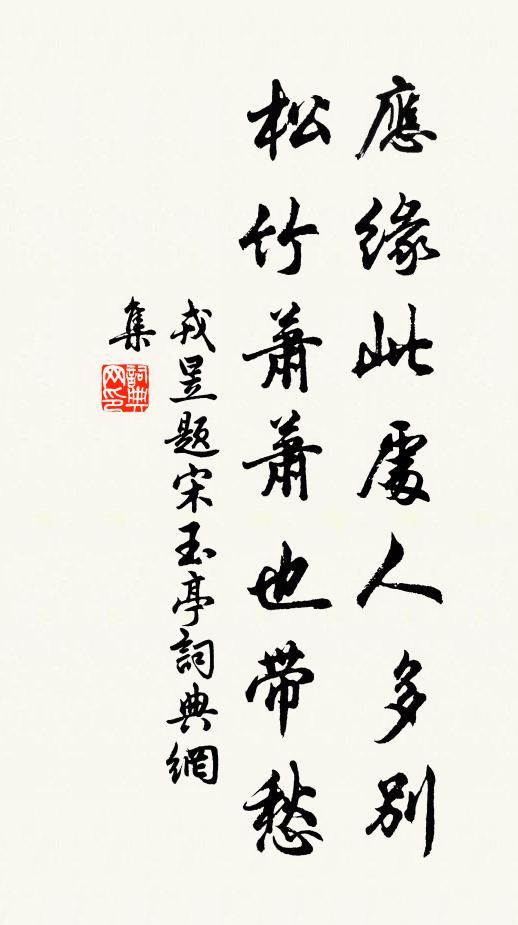 應緣此處人多別
松竹蕭蕭也帶愁
戎昱題宋玉亭詞典網
集
詞典
网印